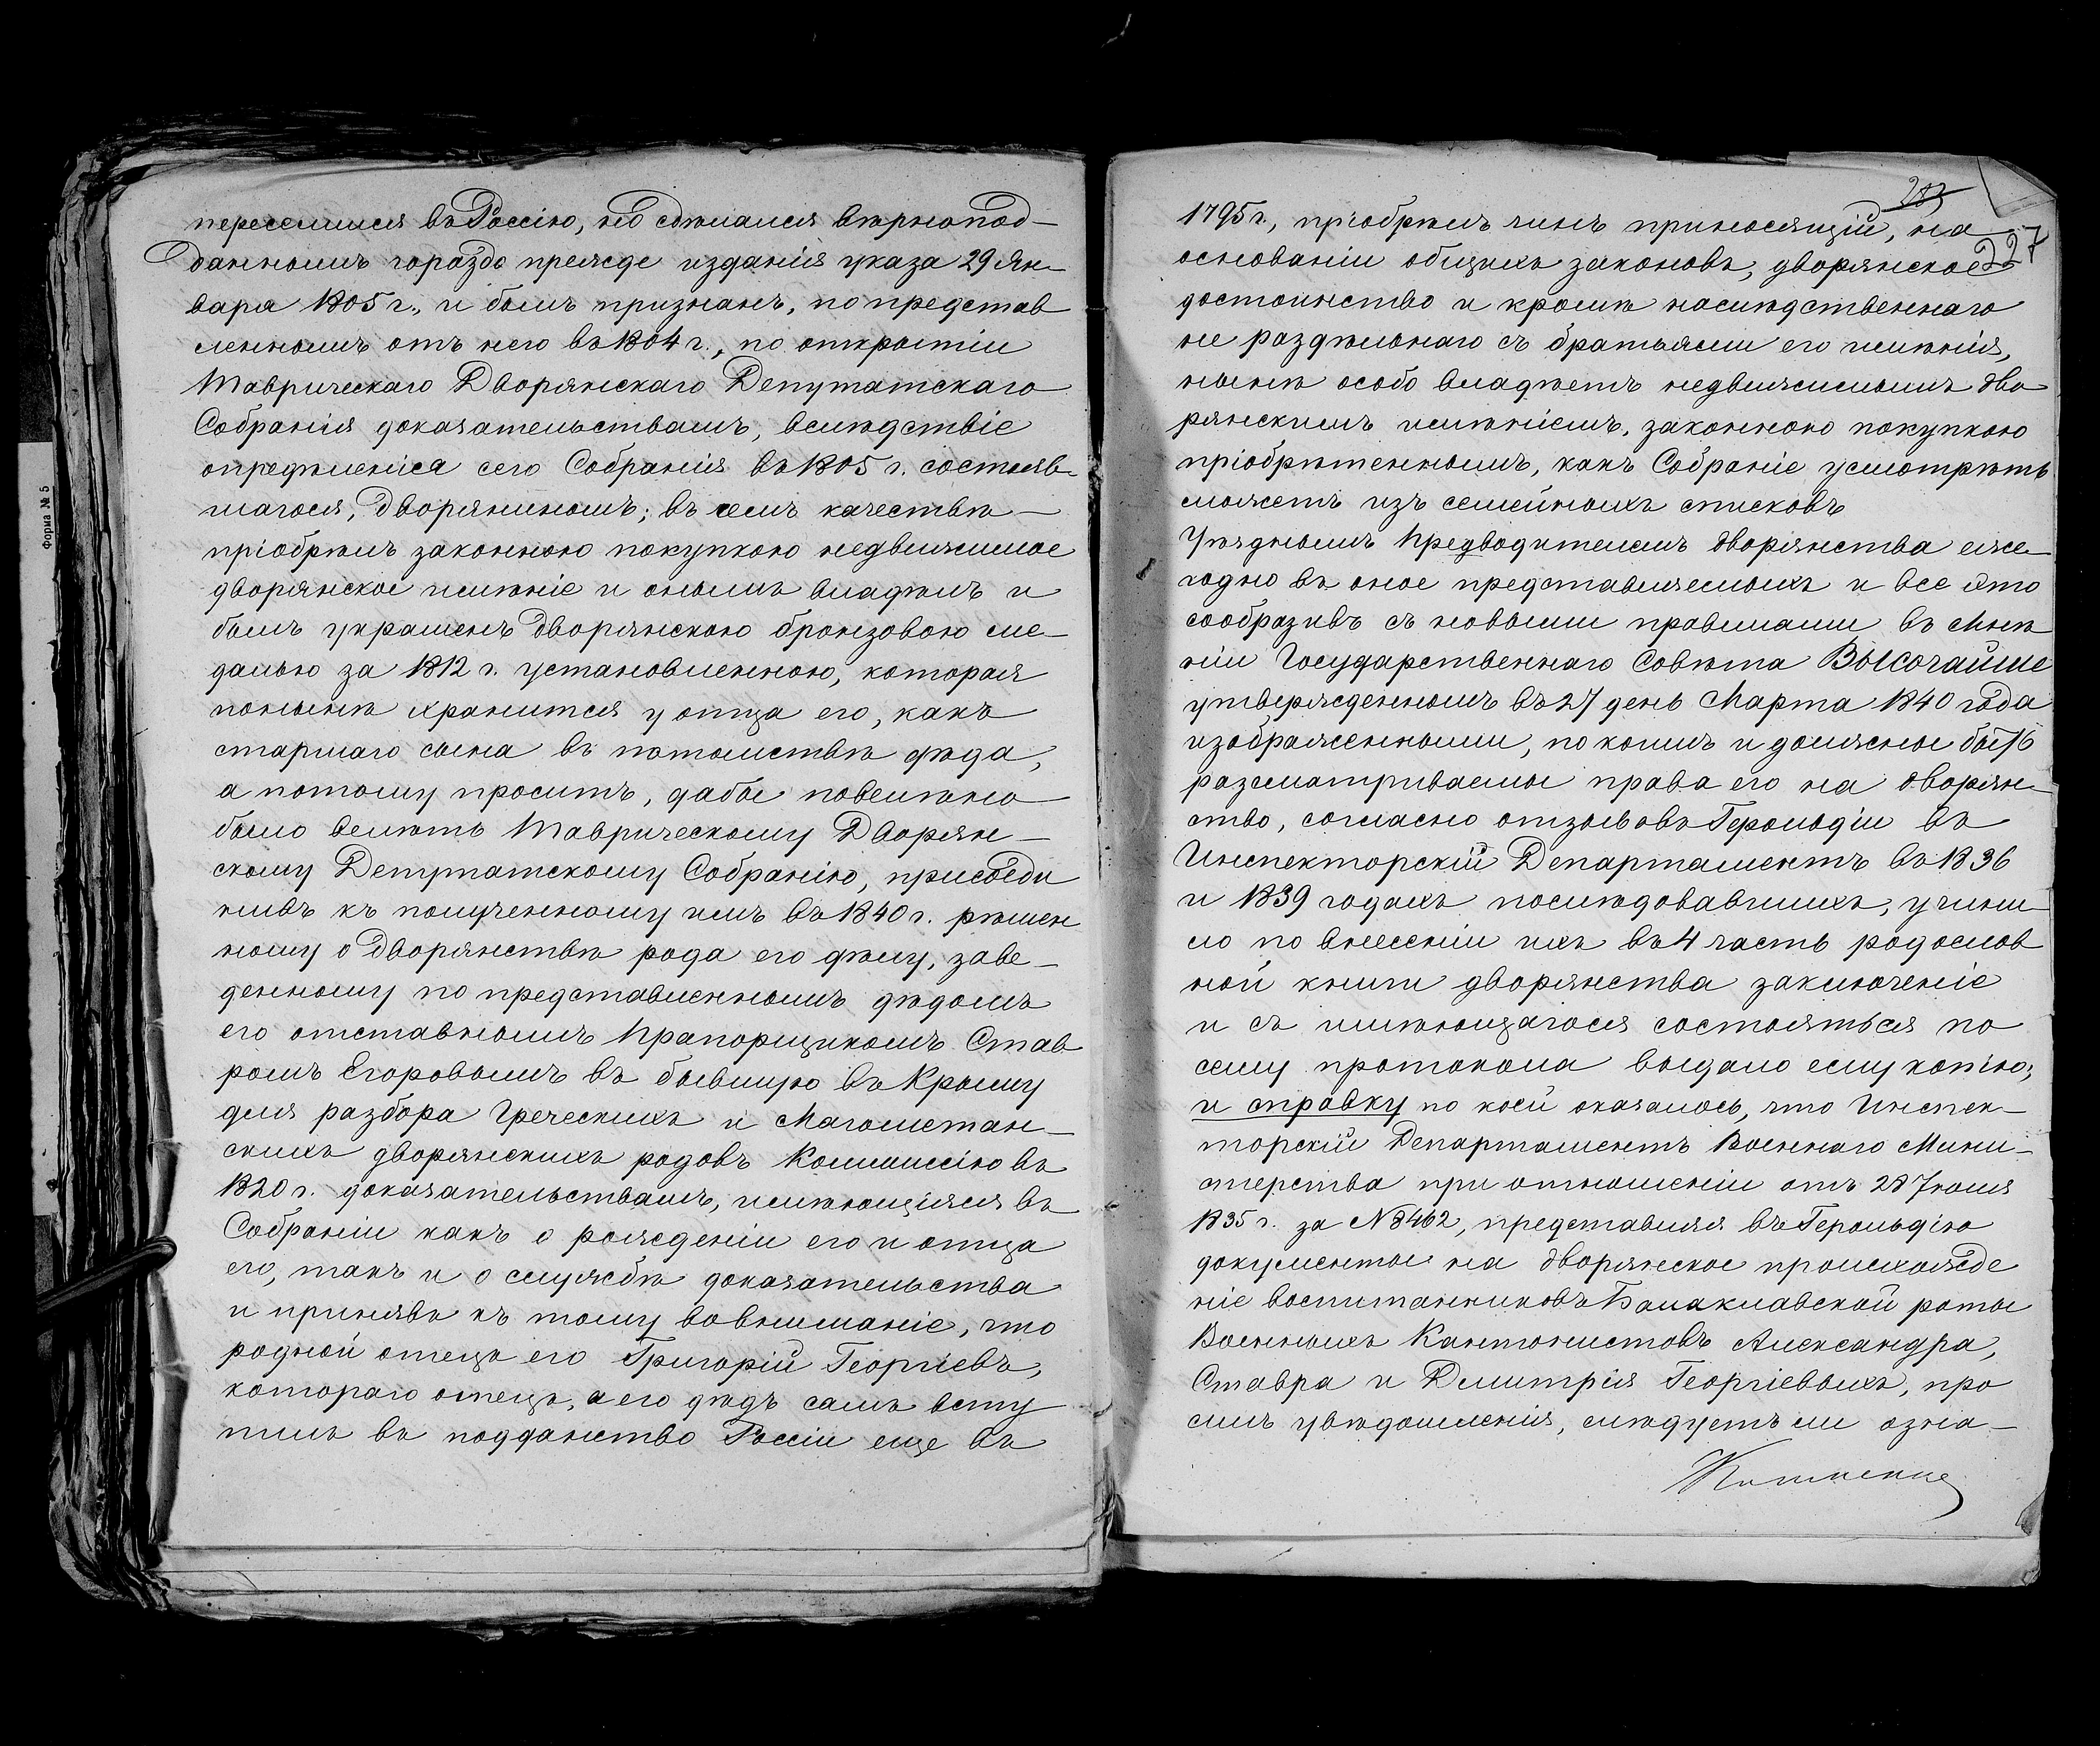 переселился въ Россію, но сдѣлался вѣрнопод-
даннымъ гораздо прежде изданія указа 29 Ян-
варя 1805 г., и былъ признанъ, по представ
леннымъ отъ него въ 1804 г., по открытіи
Таврическаго Дворянскаго Депутатскаго
Собранія доказательствамъ, вслѣдствіе
опредѣленія сего Собранія въ 1805 г. состояв-
шагося, Дворяниномъ; въ семъ качествѣ —
пріобрѣлъ законною покупкою недвижимое
дворянское имѣніе и онымъ владѣлъ и
былъ украшенъ дворянскою бронзовою ме-
далью за 1812 г. установленною, которая
понынѣ хранится у отца его, какъ
старшаго сына въ потомствѣ дѣда,
а потому проситъ, дабы повелѣно
было велѣть Таврическому Дворян-
скому Депутатскому Собранію, присоеди
нивъ къ полученному имъ въ 1840 г. рѣшен
ному о дворянствѣ рода его дѣлу, заве-
денному по представленнымъ дѣдомъ
его отставнымъ Прапорщикомъ Став
ромъ Егоровымъ въ бывшую въ Крыму
для разбора Греческихъ и Магометан-
скихъ дворянскихъ родовъ Коммиссію въ
1820 г. доказательствамъ, имѣющіяся въ
Собраніи какъ о рожденіи его и отца
его, такъ и о службѣ доказательства
и принявъ къ тому во вниманіе, что
родной отецъ его Григорій Георгіевъ,
котораго отецъ, а его дѣдъ самъ всту
пилъ въ подданство Россіи еще въ
227
1795 г., пріобрѣлъ чинъ приносящій, на
основаніи общихъ законовъ, дворянское
достоинство и кромѣ наслѣдственнаго
не раздѣльнаго съ братьями его имѣнія,
нынѣ особо владѣетъ недвижимымъ дво
рянскимъ имѣніемъ, законною покупкою
пріобрѣтеннымъ, какъ Собраніе усмотрѣть
можетъ изъ семейныхъ списковъ
Уѣзднымъ Предводителемъ дворянства еже-
годно въ оное представляемыхъ и все это
сообразивъ съ новыми правилами въ Мнѣ
ніи Государственнаго Совѣта Высочайше
утвержденномъ въ 27 день Марта 1840 года
изображенными, по коимъ и должны быть
разсматриваемы права его на дворян-
ство, согласно отзывовъ Герольдіи въ
Инспекторскій Департаментъ въ 1836
и 1839 годахъ послѣдовавшихъ, учини
ло по внесеніи ихъ въ 4 часть родослов
ной книги дворянства заключеніе
и съ имѣющагося состояться по
сему протокола выдало ему копію;
и справку по коей оказалось, что Инспек-
торскій Департаментъ Военнаго Мини-
стерства при отношеніи отъ 28 Іюля
1835 г. за № 8462, представляя въ Герольдію
документы на дворянское происхожде
ніе воспитанниковъ Балаклавской роты
Военныхъ Кантонистовъ Александра,
Ставра и Дмитрія Георгіевыхъ, про
силъ увѣдомленія, слѣдуетъ ли озна-
Форма № 5